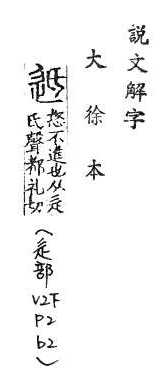 說文解字
大徐本
䢑
怒不進也从辵
氐聲都礼切
(辵部 V2下 P2 b2)